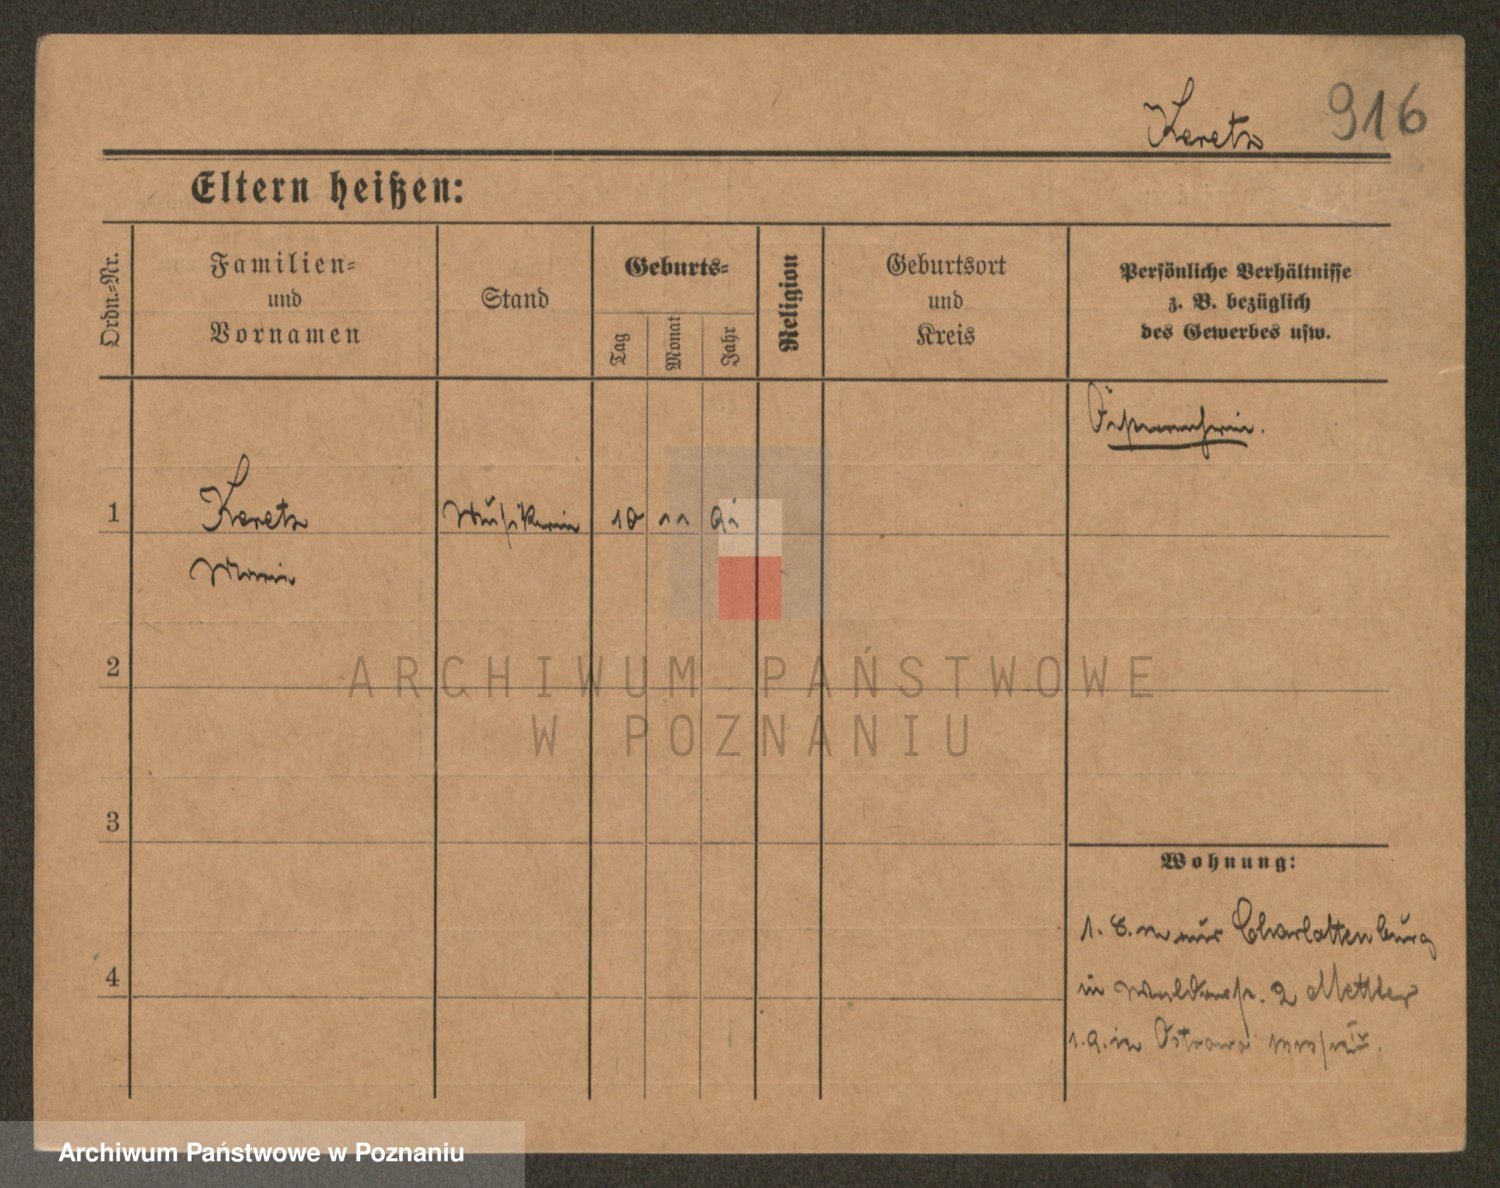 916
Keretz
Eltern heißen:
Ordn.-Nr.
Familien-
und
Vornamen
Stand
Geburts-
Tag
Monat
Jahr
Religion
Geburtsort
und
Kreis
Persönliche Verhältnisse
z. B. bezüglich
des Gewerbes usw.
1
Keretz
Musikerin
10
11
91
Marie
2
ARCHIWUM PAŃSTWOWE
W POZNANIU
3
Wohnung:
1. 8. Charlottenburg
in 2 Mettler
1. 9. in Ostrowo
4
Archiwum Państwowe w Poznaniu